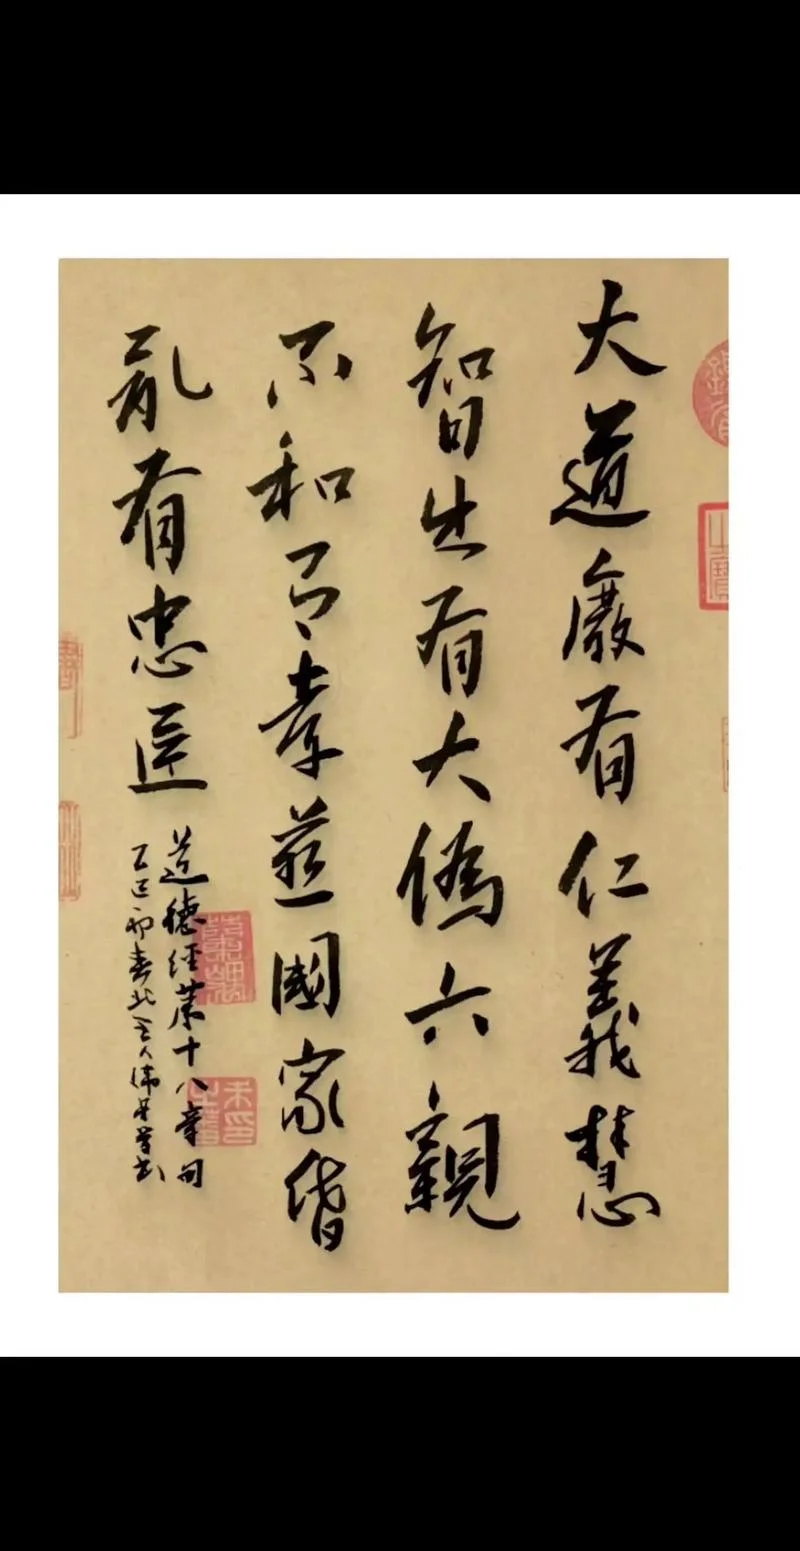 大道廢有仁義慧
智出有大偽六親
不和有孝慈國家昏
亂有忠臣
道德經第十八章句
乙巳初春北人偉書